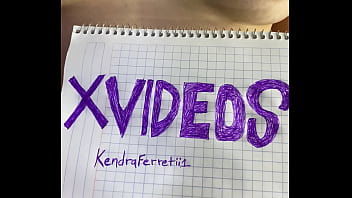 XVIDEOS
KendraFerretii1